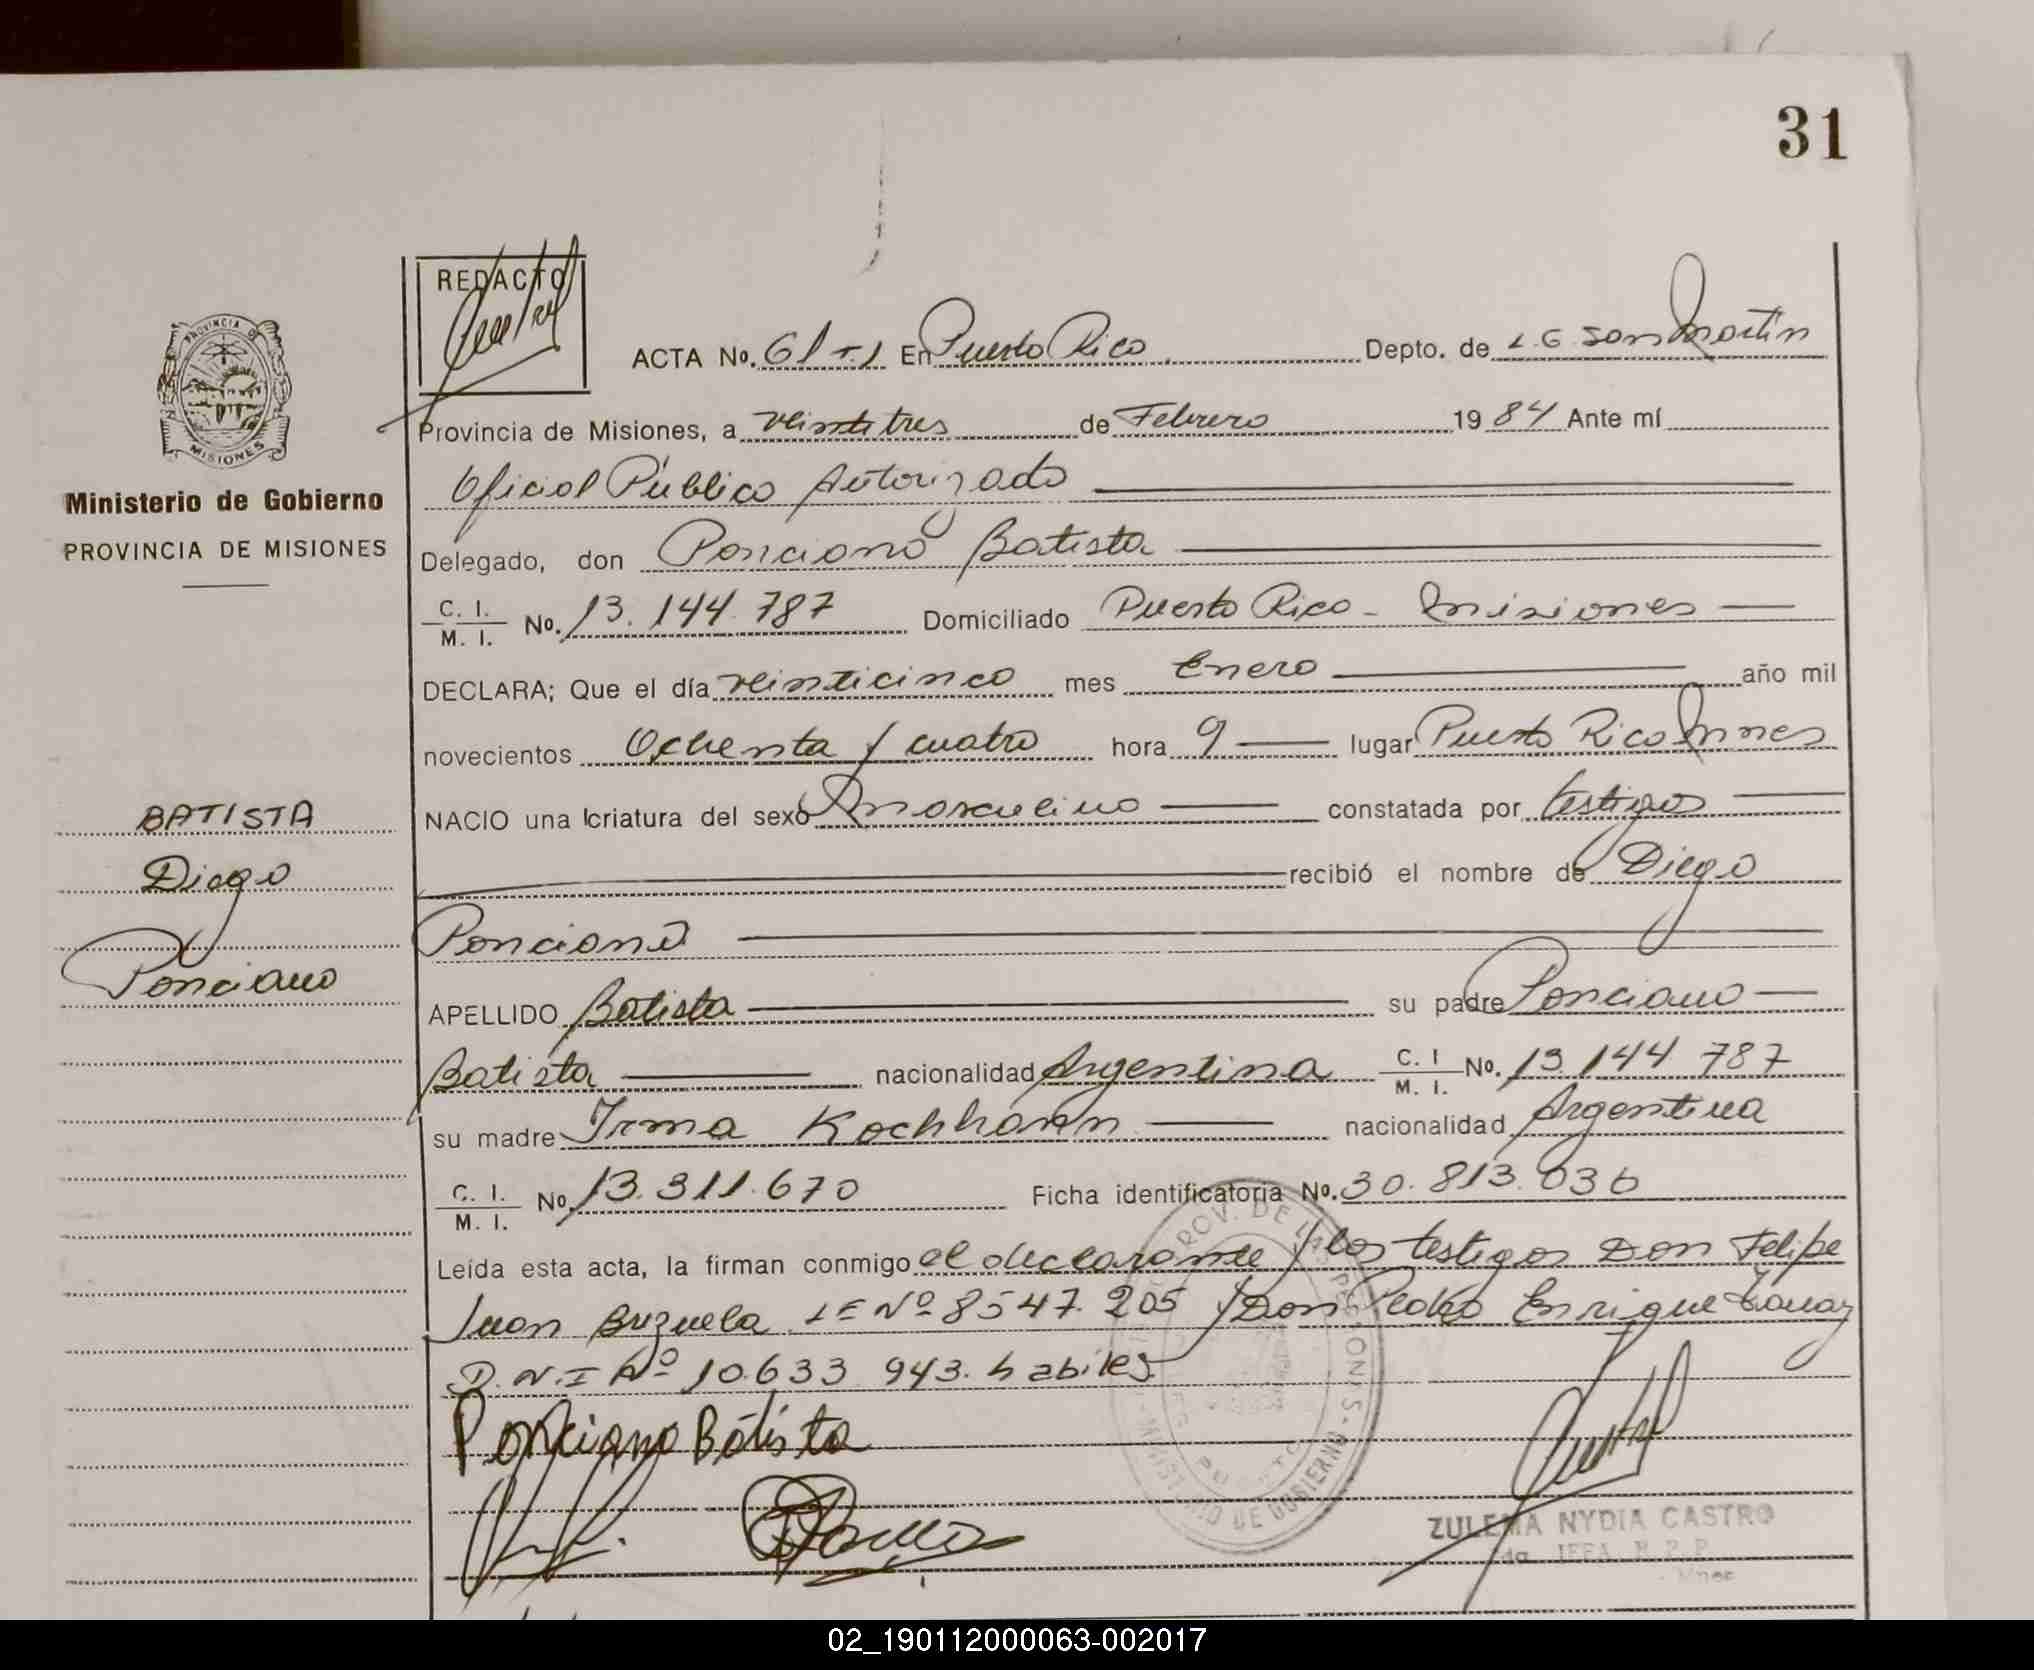 31
REDACTO
ACTA No. 61 T.1 En Puerto Rico Depto. de L.G. San Martín
PROVINCIA DE
MISIONES
Provincia de Misiones, a veintitres de Febrero 1984 Ante mí
Oficial Público Autorizado
Ministerio de Gobierno
PROVINCIA DE MISIONES
Delegado, don Ponciano Batista
C. I. M. I. No. 13.144.787 Domiciliado Puerto Rico - Misiones
DECLARA; Que el día veinticinco mes Enero año mil
novecientos Ochenta y cuatro hora 9 lugar Puerto Rico Mnes
BATISTA
NACIO una criatura del sexo Masculino constatada por testigos
Diego
recibió el nombre de Diego
Ponciano
Ponciano
APELLIDO Batista su padre Ponciano
Batista nacionalidad Argentina C. I M. I. No. 13.144.787
su madre Irma Kochhann nacionalidad Argentina
C. I. M. I. No. 13.311.670 Ficha identificatoria No. 30.813.036
Leída esta acta, la firman conmigo el declarante y los testigos Don Felipe
Juan Brzuela LE Nº 8547.205 y Don Pedro Enrique
D.N.I Nº 10.633 943. habiles
Ponciano Batista
ZULEMA NYDIA CASTRO
02_190112000063-002017